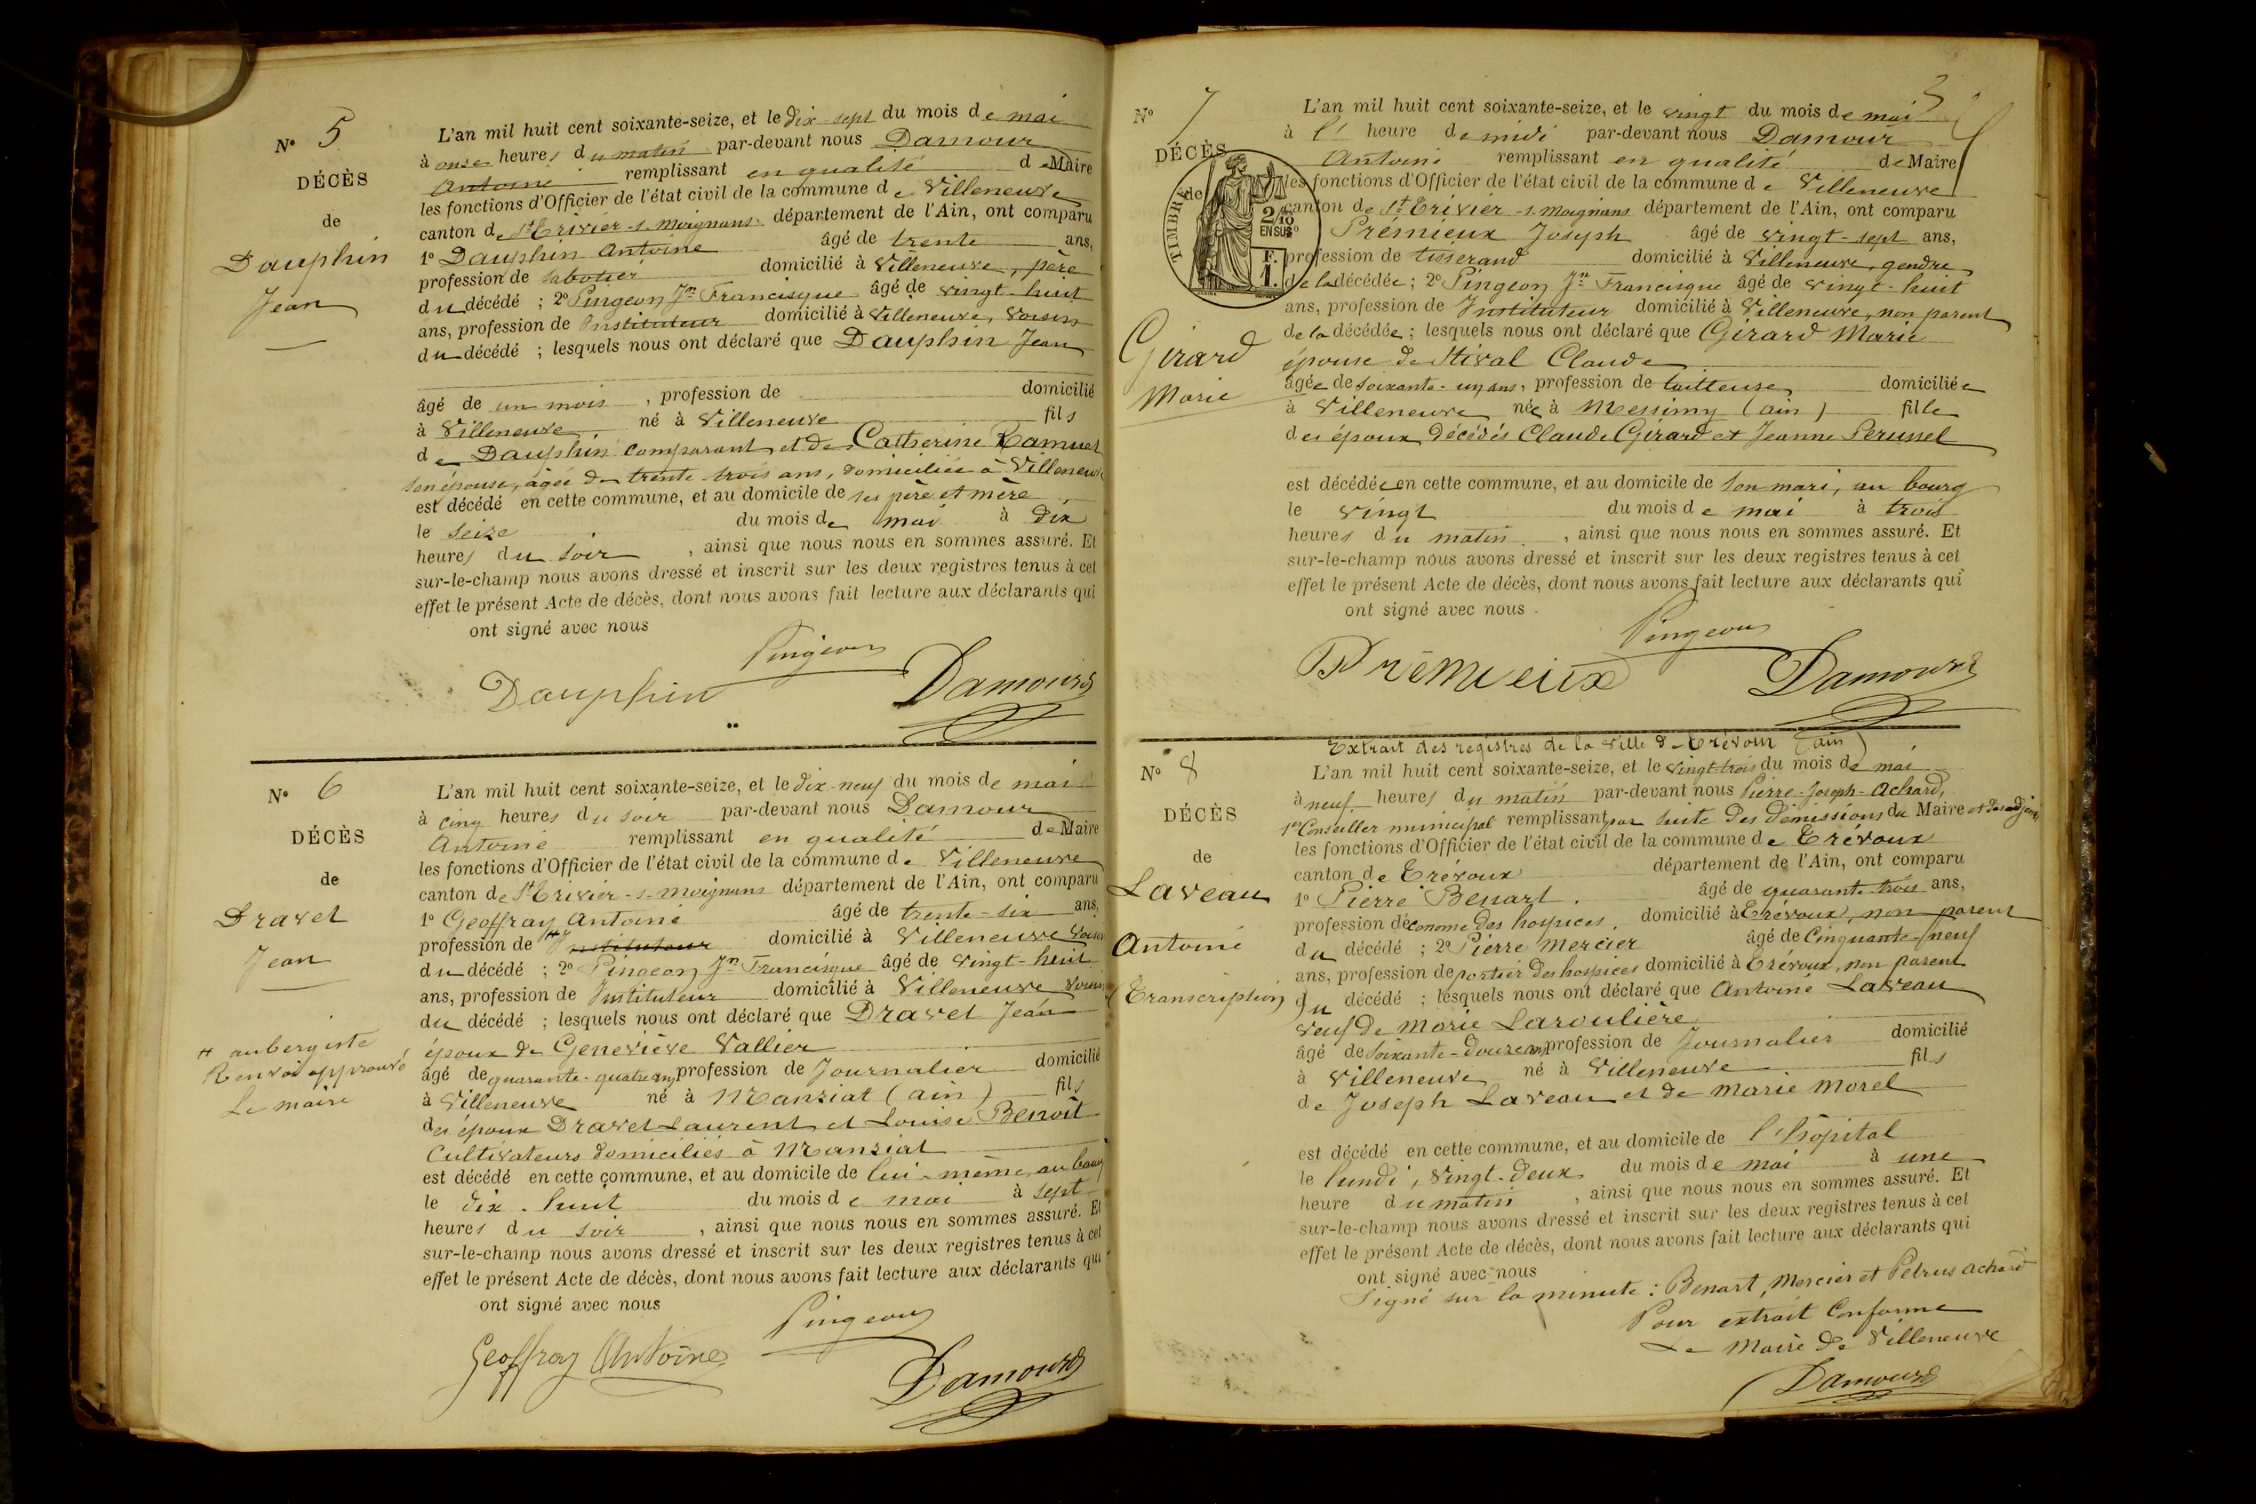 N° 5
DÉCÈS
de
Dauphin
Jean
L'an mil huit cent soixante-seize, et le dix-sept du mois de mai
à onze heures du matin par-devant nous Damour
Antoine remplissant en qualité de Maire
les fonctions d'Officier de l'état civil de la commune de Villeneuve
canton de St Trivier-s-Moignans département de l'Ain, ont comparu
1° Dauphin Antoine âgé de trente ans,
profession de sabotier domicilié à Villeneuve, père
du décédé ; 2° Pingeon Jn Francisque âgé de vingt-huit
ans, profession de Instituteur domicilié à Villeneuve, voisin
du décédé ; lesquels nous ont déclaré que Dauphin Jean
âgé de un mois , profession de domicilié
à Villeneuve né à Villeneuve fils
de Dauphin comparant et de Catherine Ramuet
son épouse, âgée de trente-trois ans, domiciliée à Villeneuve
est décédé en cette commune, et au domicile de ses père et mère,
le seize du mois de mai à dix
heures du soir , ainsi que nous nous en sommes assuré. Et
sur-le-champ nous avons dressé et inscrit sur les deux registres tenus à cet
effet le présent Acte de décès, dont nous avons fait lecture aux déclarants qui
ont signé avec nous
Pingeon
Dauphin Damour
N° 6
DÉCÈS
de
Dravet
Jean
H aubergiste
Renvoi approuvé
Le maire
L'an mil huit cent soixante-seize, et le dix-neuf du mois de mai
à cinq heures du soir par-devant nous Damour
Antoine remplissant en qualité de Maire
les fonctions d'Officier de l'état civil de la commune de Villeneuve
canton de St Trivier-s-Moignans département de l'Ain, ont comparu
1° Geoffray Antoine âgé de trente-six ans,
profession de H Instituteur domicilié à Villeneuve voisin
du décédé ; 2° Pingeon Jn Francisque âgé de vingt-huit
ans, profession de Instituteur domicilié à Villeneuve voisin
du décédé ; lesquels nous ont déclaré que Dravet Jean
époux de Geneviève Vallier
âgé de quarante-quatre ans, profession de Journalier domicilié
à Villeneuve né à Manziat (ain) fils
des époux Dravet Laurent et Louise Benoît
Cultivateurs domiciliés à Manziat
est décédé en cette commune, et au domicile de lui-même, au bourg
le dix-huit du mois de mai à sept
heures du soir , ainsi que nous nous en sommes assuré. Et
sur-le-champ nous avons dressé et inscrit sur les deux registres tenus à cet
effet le présent Acte de décès, dont nous avons fait lecture aux déclarants qui
ont signé avec nous
Pingeon
Geoffray Antoine
Damour
3
N° 7
DÉCÈS
de
TIMBRE
2/10
EN SUS
F.
1.
Girard
Marie
L'an mil huit cent soixante-seize, et le vingt du mois de mai
à l' heure de midi par-devant nous Damour
Antoine remplissant en qualité de Maire
les fonctions d'Officier de l'état civil de la commune de Villeneuve
canton de St Trivier-s-Moignans département de l'Ain, ont comparu
1° Prémieux Joseph âgé de vingt-sept ans,
profession de tisserand domicilié à Villeneuve, gendre
de la décédée ; 2° Pingeon Jn Francisque âgé de vingt-huit
ans, profession de Instituteur domicilié à Villeneuve, non parent
de la décédée ; lesquels nous ont déclaré que Girard Marie
épouse de Stival Claude
âgée de soixante-un ans, profession de tailleuse domiciliée
à Villeneuve née à Messimy (ain) fille
des époux décédés Claude Girard et Jeanne Perussel
est décédée en cette commune, et au domicile de son mari, au bourg
le vingt du mois de mai à trois
heures du matin , ainsi que nous nous en sommes assuré. Et
sur-le-champ nous avons dressé et inscrit sur les deux registres tenus à cet
effet le présent Acte de décès, dont nous avons fait lecture aux déclarants qui
ont signé avec nous.
Pingeon
Prémieux Damour
N° 8
DÉCÈS
de
Laveau
Antoine
(Transcription)
Extrait des registres de la ville de Trévoux (ain)
L'an mil huit cent soixante-seize, et le vingt-trois du mois de mai
à neuf heures du matin par-devant nous Pierre-Joseph-Achard,
1er Conseiller municipal remplissant par suite des démissions du Maire et des adjoints
les fonctions d'Officier de l'état civil de la commune de Trévoux
canton de Trévoux département de l'Ain, ont comparu
1° Pierre Benart. âgé de quarante-trois ans,
profession d'économe des hospices. domicilié à Trévoux, non parent
du décédé ; 2° Pierre Mercier âgé de Cinquante-neuf
ans, profession de portier des hospices domicilié à Trévoux, non parent
du décédé ; lesquels nous ont déclaré que Antoine Laveau
veuf de Marie Laroulière
âgé de soixante-douze ans, profession de Journalier domicilié
à Villeneuve né à Villeneuve fils
de Joseph Laveau et de Marie Morel
est décédé en cette commune, et au domicile de l'hôpital
le lundi, vingt-deux du mois de mai à une
heure du matin , ainsi que nous nous en sommes assuré. Et
sur-le-champ nous avons dressé et inscrit sur les deux registres tenus à cet
effet le présent Acte de décès, dont nous avons fait lecture aux déclarants qui
ont signé avec nous
Signé sur la minute : Benart, Mercier et Petrus Achard
Pour extrait Conforme
Le Maire de Villeneuve
Damour